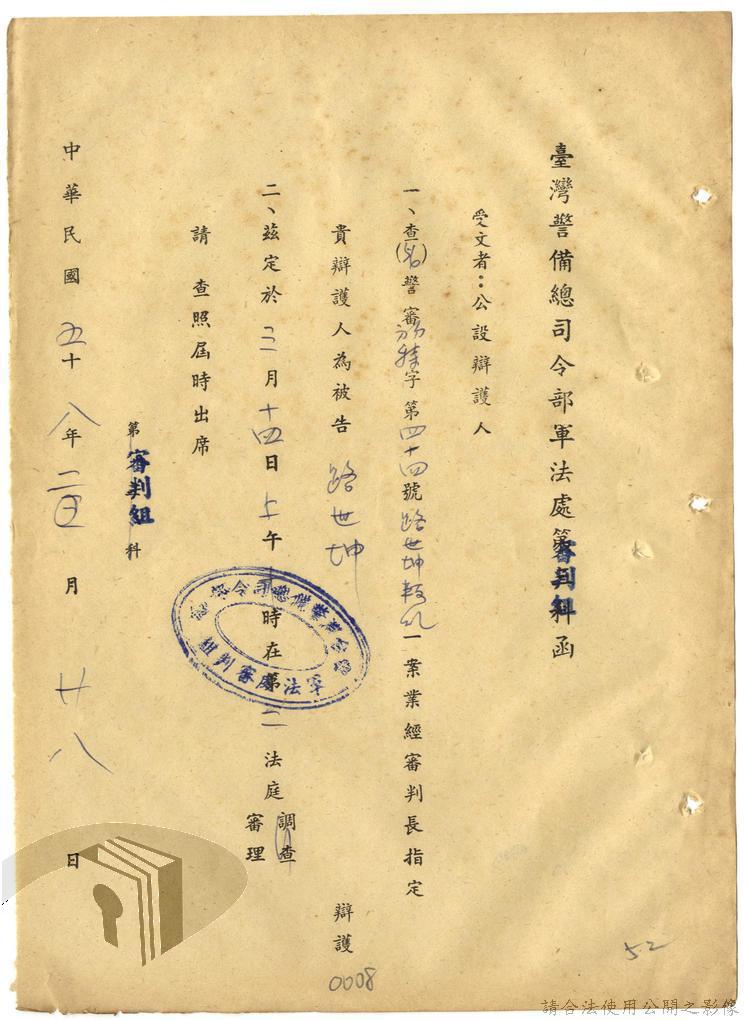 臺灣警備總司令部軍法處第審判組科函
受文者：公設辯護人
一、查()警審字第四十四號路世坤叛亂一案業經審判長指定
貴辯護人為被告 路世坤 辯護
二、茲定於三月十四日上午 時在第二法庭調查審理
請查照屆時出席
第審判組科
中華民國五十八年二月廿八日
臺灣警備總司令部
軍法處審判組
0008
52
請合法使用公開之影像